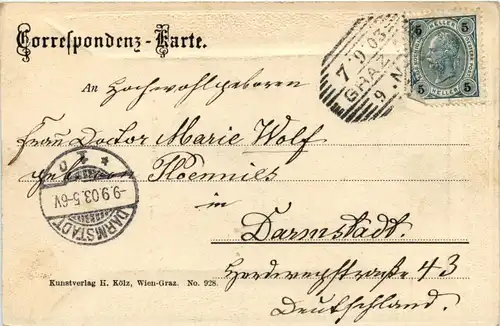 Correspondenz-Karte.
7 9 03
GRAZ
9 N
5 5
HELLER
5 HELLER 5
An Hochwohlgeboren
Frau Doctor Marie Wolf
geboren Hoennies
in
Darmstadt.
Herdwegstrasse 43
Deutschland.
-9.9.03.5-6V.
DARMSTADT
Kunstverlag H. Kölz, Wien-Graz. No. 928.